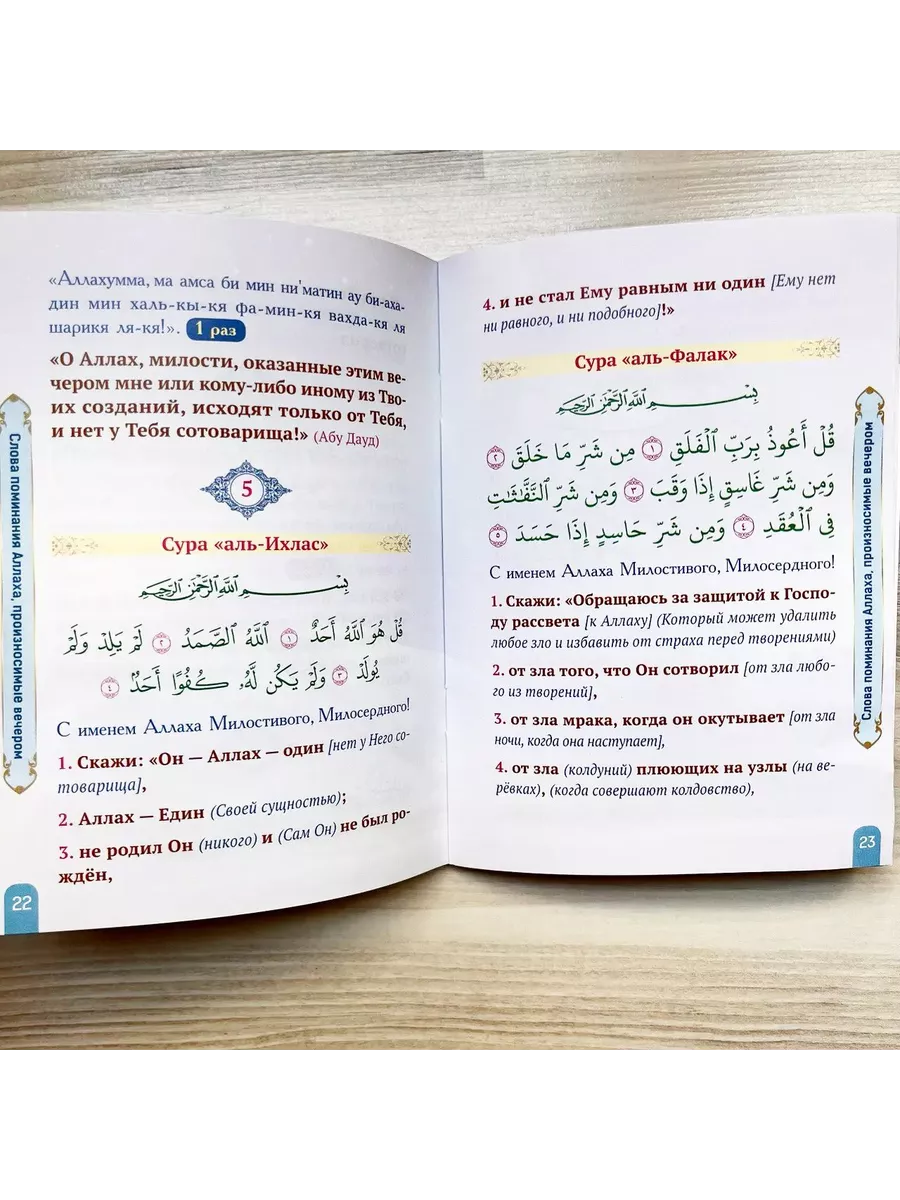 «Аллахумма, ма амса би мин ни'матин ау би-аха-
дин мин халь-кы-кя фа-мин-кя вахда-кя ля
шарикя ля-кя!». 1 раз
«О Аллах, милости, оказанные этим ве-
чером мне или кому-либо иному из Тво-
их созданий, исходят только от Тебя,
и нет у Тебя сотоварища!» (Абу Дауд)
5
Сура «аль-Ихлас»
بِسْمِ اللَّهِ الرَّحْمَٰنِ الرَّحِيمِ
قُلْ هُوَ ٱللَّهُ أَحَدٌ ١ ٱللَّهُ ٱلصَّمَدُ ٢ لَمْ يَلِدْ وَلَمْ
يُولَدْ ٣ وَلَمْ يَكُن لَّهُۥ كُفُوًا أَحَدٌۢ ٤
С именем Аллаха Милостивого, Милосердного!
1. Скажи: «Он — Аллах — один [нет у Него со-
товарища],
2. Аллах — Един (Своей сущностью);
3. не родил Он (никого) и (Сам Он) не был ро-
ждён,
Слова поминания Аллаха, произносимые вечером
22
4. и не стал Ему равным ни один [Ему нет
ни равного, и ни подобного]!»
Сура «аль-Фалак»
بِسْمِ اللَّهِ الرَّحْمَٰنِ الرَّحِيمِ
قُلْ أَعُوذُ بِرَبِّ ٱلْفَلَقِ ١ مِن شَرِّ مَا خَلَقَ ٢
وَمِن شَرِّ غَاسِقٍ إِذَا وَقَبَ ٣ وَمِن شَرِّ ٱلنَّفَّٰثَٰتِ
فِي ٱلْعُقَدِ ٤ وَمِن شَرِّ حَاسِدٍ إِذَا حَسَدَ ٥
С именем Аллаха Милостивого, Милосердного!
1. Скажи: «Обращаюсь за защитой к Госпо-
ду рассвета [к Аллаху] (Который может удалить
любое зло и избавить от страха перед творениями)
2. от зла того, что Он сотворил [от зла любо-
го из творений],
3. от зла мрака, когда он окутывает [от зла
ночи, когда она наступает],
4. от зла (колдуний) плюющих на узлы (на ве-
рёвках), (когда совершают колдовство),
Слова поминания Аллаха, произносимые вечером
23